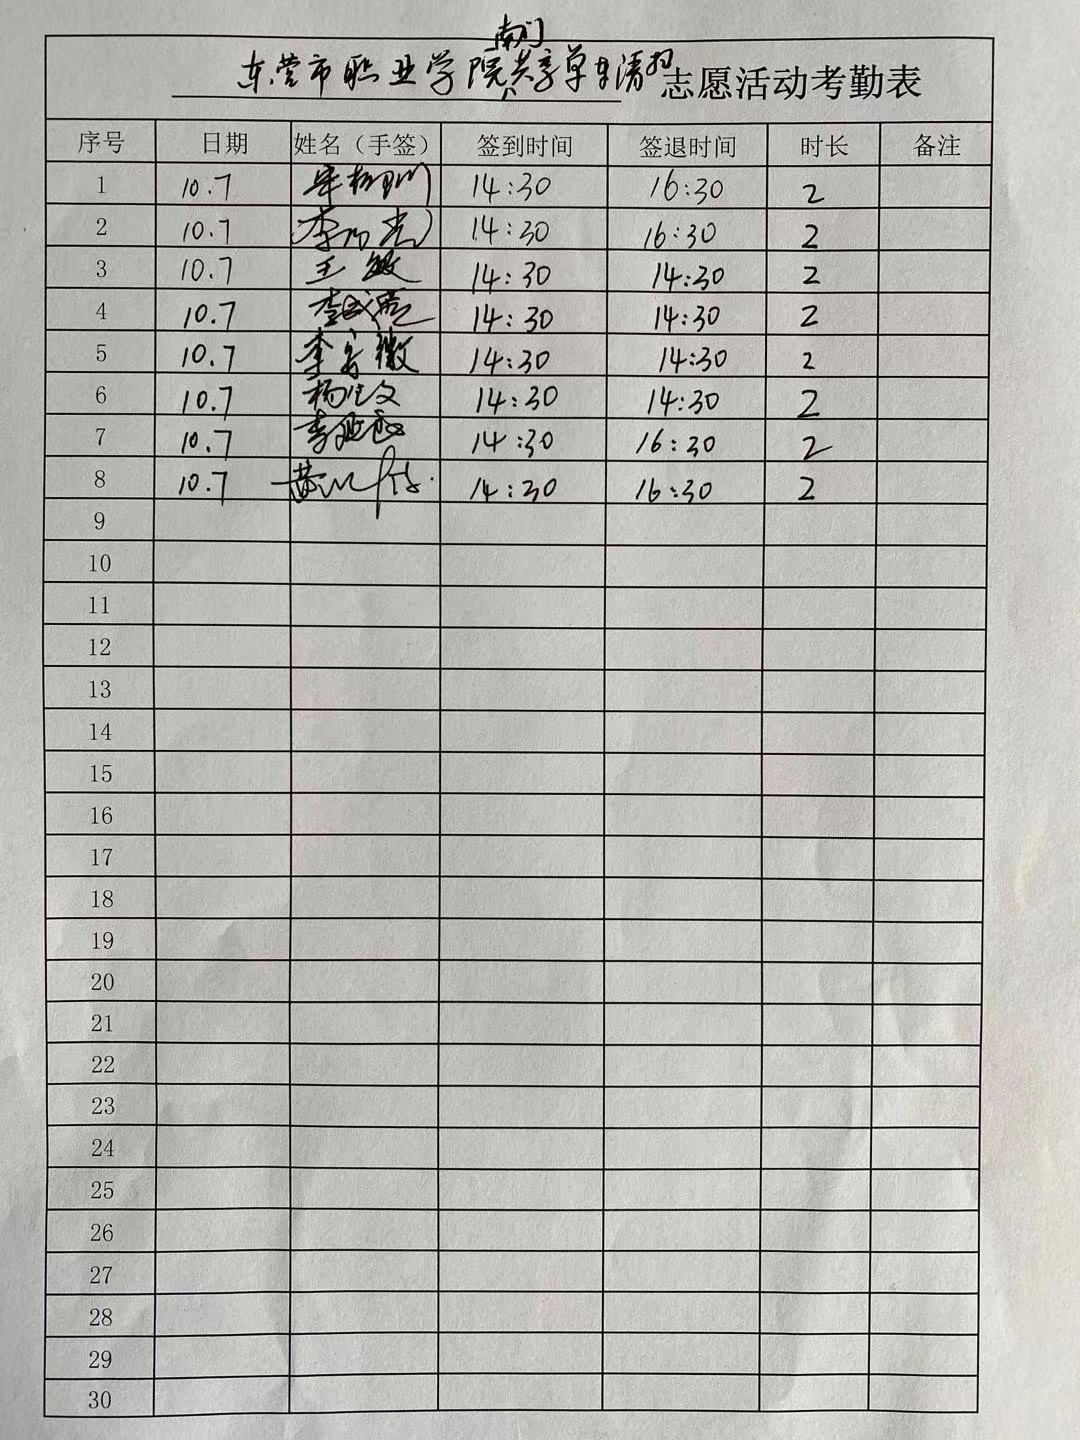 南门
东营市职业学院共享单车清扫志愿活动考勤表
序号 日期 姓名（手签） 签到时间 签退时间 时长 备注
1 10.7 14:30 16:30 2
2 10.7 14:30 16:30 2
3 10.7 王敏 14:30 14:30 2
4 10.7 14:30 14:30 2
5 10.7 14:30 14:30 2
6 10.7 14:30 14:30 2
7 10.7 14:30 16:30 2
8 10.7 14:30 16:30 2
9
10
11
12
13
14
15
16
17
18
19
20
21
22
23
24
25
26
27
28
29
30